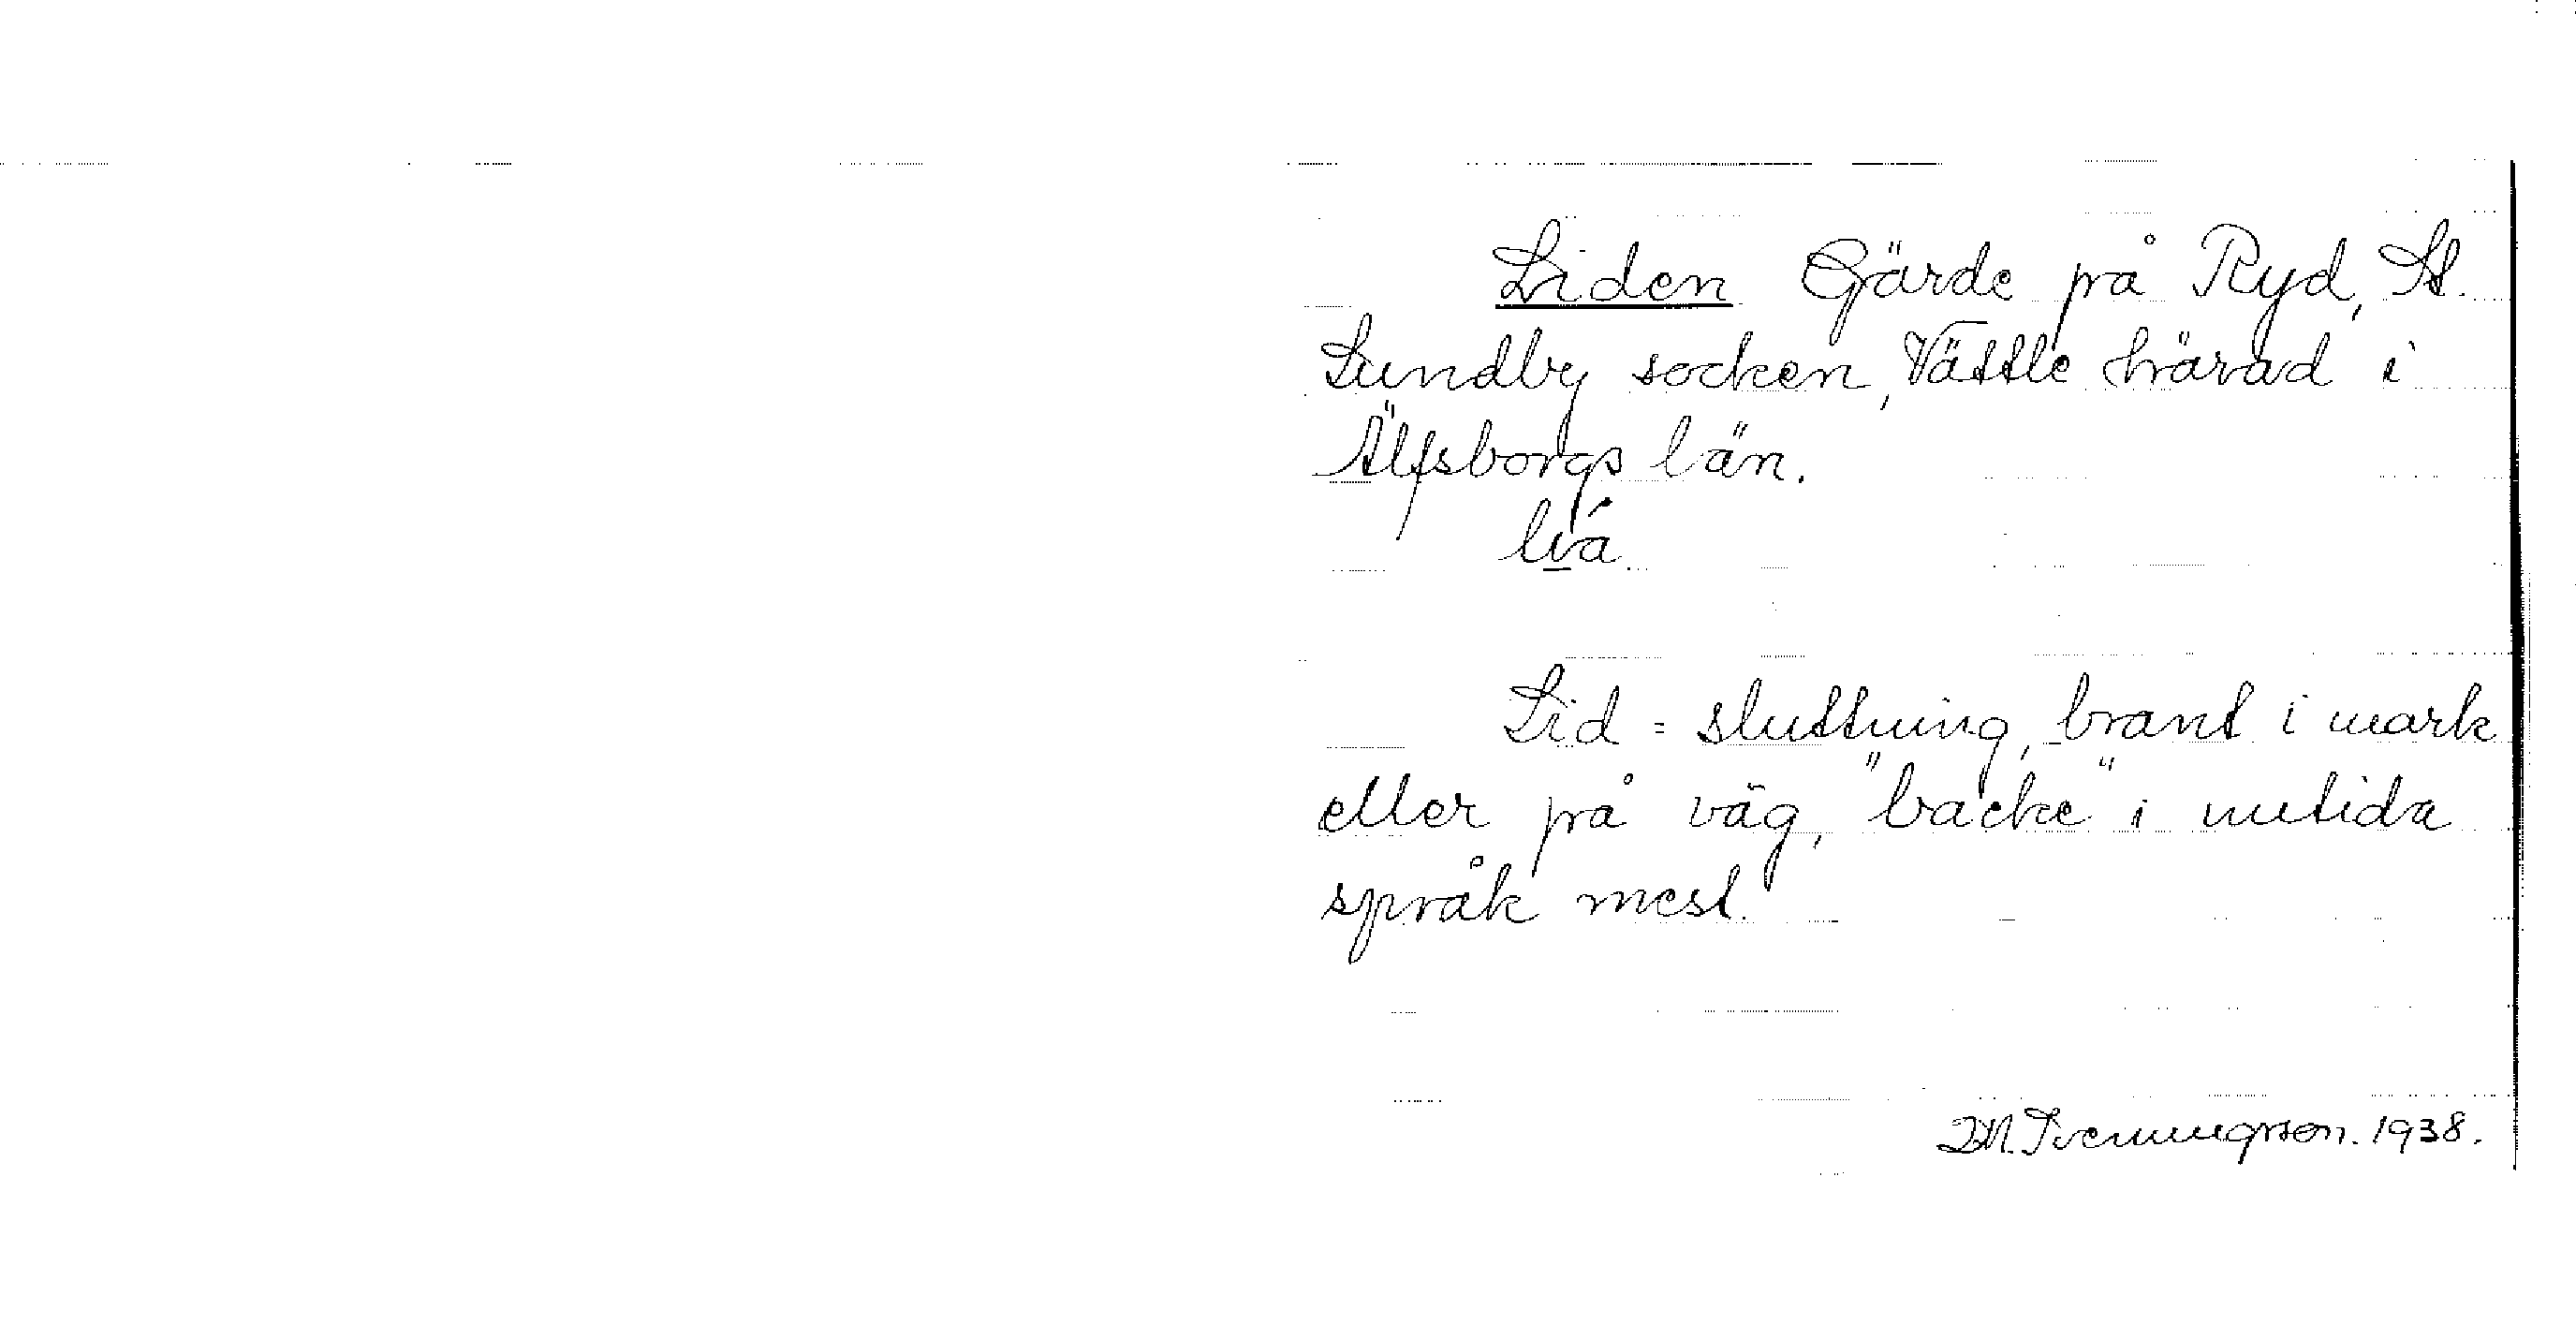 Liden Gärde på Ryd, St.
Lundby socken, Vättle härad i
Älfsborgs län.
Lid = sluttning, brant i mark
eller på väg, "backe" i nutida
språk mest.
1938.